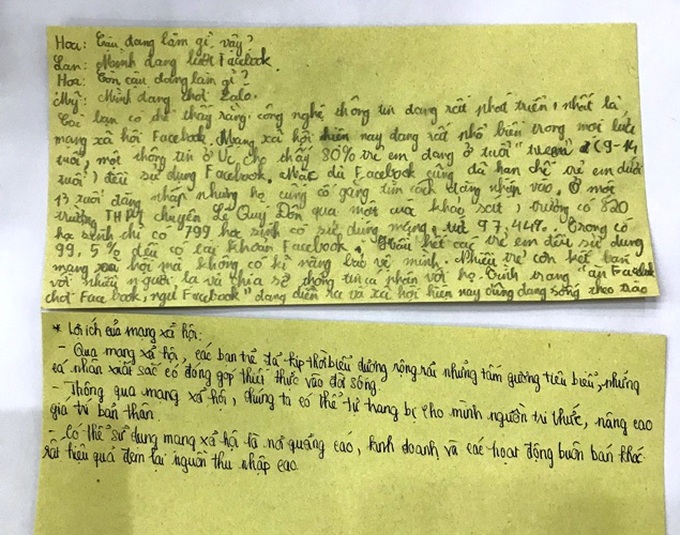 Hoa: Cậu đang làm gì vậy?
Lan: Mình đang lướt Facebook.
Hoa: Còn cậu đang làm gì?
Mỹ: Mình đang chơi Zalo.
Các bạn có thể thấy rằng công nghệ thông tin đang rất phát triển, nhất là,
mạng xã hội Facebook. Mạng xã hội hiện nay đang rất phổ biến trong mọi lứa
tuổi, một thông tin ở Úc cho thấy 80% trẻ em đang ở tuổi "tween" (9-14
tuổi) đều sử dụng Facebook. Mặc dù Facebook cũng đã hạn chế trẻ em dưới
13 tuổi đăng nhập nhưng họ cũng cố gắng tìm cách đăng nhập vào. Ở một
trường THPT chuyên Lê Quý Đôn qua một cuộc khảo sát, trường có 820
học sinh thì có 799 học sinh có sử dụng mạng, tức 97,44%. Trong có
99,5% đều có tài khoản Facebook. Hầu hết các trẻ em đều sử dụng
mạng xã hội mà không có kĩ năng bảo vệ mình. Nhiều trẻ còn kết bạn
với nhiều người lạ và chia sẻ thông tin cá nhân với họ. Tình trạng "ăn Facebook
chơi Facebook, ngủ Facebook" đang diễn ra và xã hội hiện nay cũng đang sống theo trào
* Lợi ích của mạng xã hội:
- Qua mạng xã hội, các bạn trẻ đã kịp thời biểu dương rộng rãi những tấm gương tiêu biểu, những
cá nhân xuất sắc có đóng góp thiết thực vào đời sống.
- Thông qua mạng xã hội, chúng ta có thể tự trang bị cho mình nguồn tri thức, nâng cao
giá trị bản thân.
- Có thể sử dụng mạng xã hội là nơi quảng cáo, kinh doanh và các hoạt động buôn bán khác
rất hiệu quả đem lại nguồn thu nhập cao.